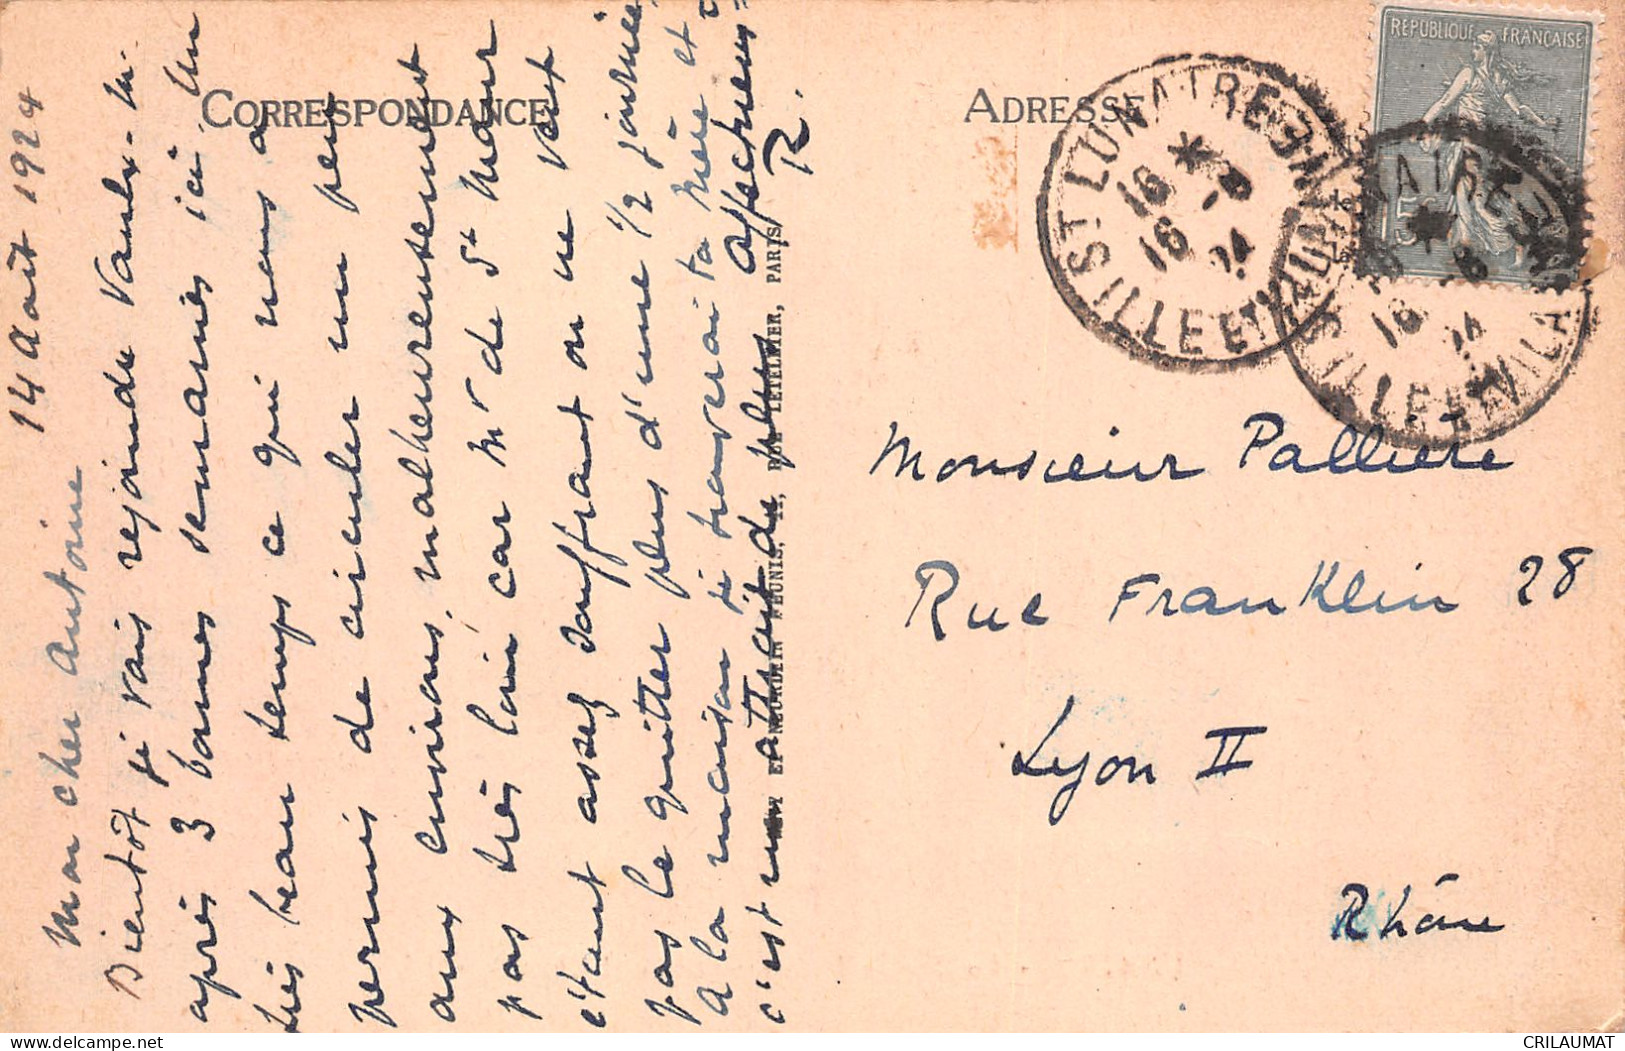 CORRESPONDANCE
ADRESSE
14 Août 1924
Mon cher Antoine
Bientôt je vais rejoindre Vaulx-M.
après 3 bonnes semaines ici. Un
très beau temps ce qui nous a
permis de circuler un peu
aux environs, malheureusement
pas très loin car Mr de St Maur
étant assez souffrant on ne peut
pas le quitter plus d'une 1/2 journée,
A la maison je trouverai ta mère et
c'est un attrait de plus Affectueus=
R.
NEURDEIN RÉUNIS, RUE LETELLIER, PARIS
RÉPUBLIQUE FRANÇAISE
15
ST LUNAIRE
16 * -8
16 24
ILLE ET VILAINE
16 * -8
16 24
ILLE ET VILAINE
Monsieur Pallière
Rue Franklin 28
Lyon II
Rhône
CRILAUMAT